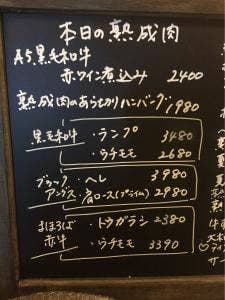 本日の熟成肉
A5 黒毛和牛
赤ワイン煮込み 2400
熟成肉のあらびきハンバーグ 1980
黒毛和牛 ・ランプ 3480
・ウチモモ 2680
ブラック・アンガス ・ヘレ 3980
・肩ロース(プライム) 2980
まほろば赤牛 ・トウガラシ 2380
・ウチモモ 3390